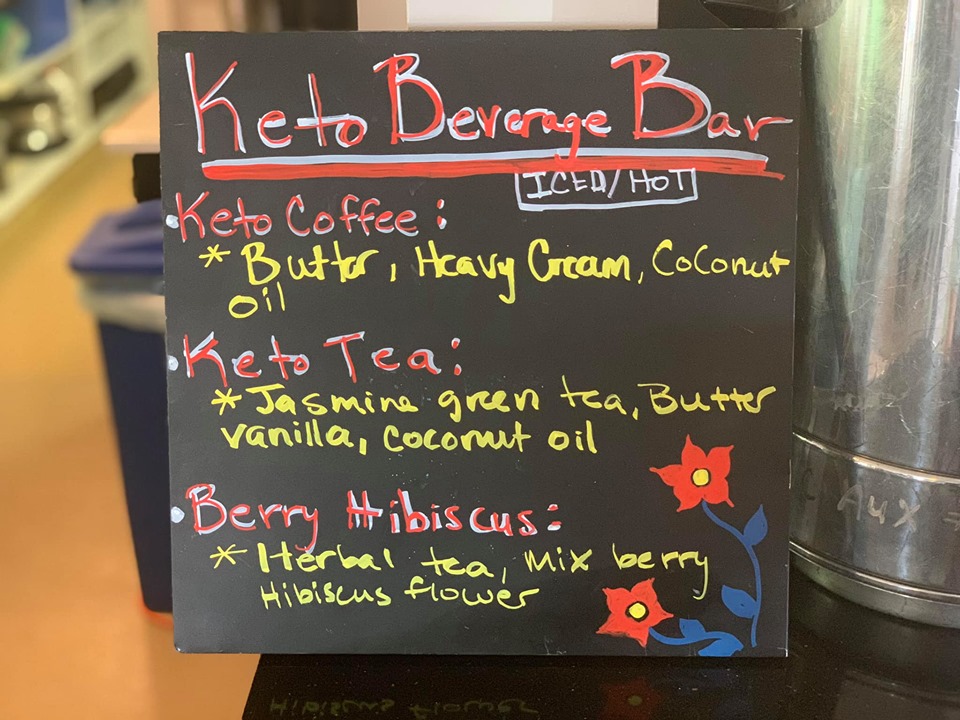 Keto Beverage Bar
ICED/HOT
• Keto Coffee:
* Butter, Heavy Cream, Coconut
oil
• Keto Tea:
* Jasmine green tea, Butter
vanilla, coconut oil
• Berry Hibiscus:
* Herbal tea, mix berry
Hibiscus flower
Aux
Hibiscus flower